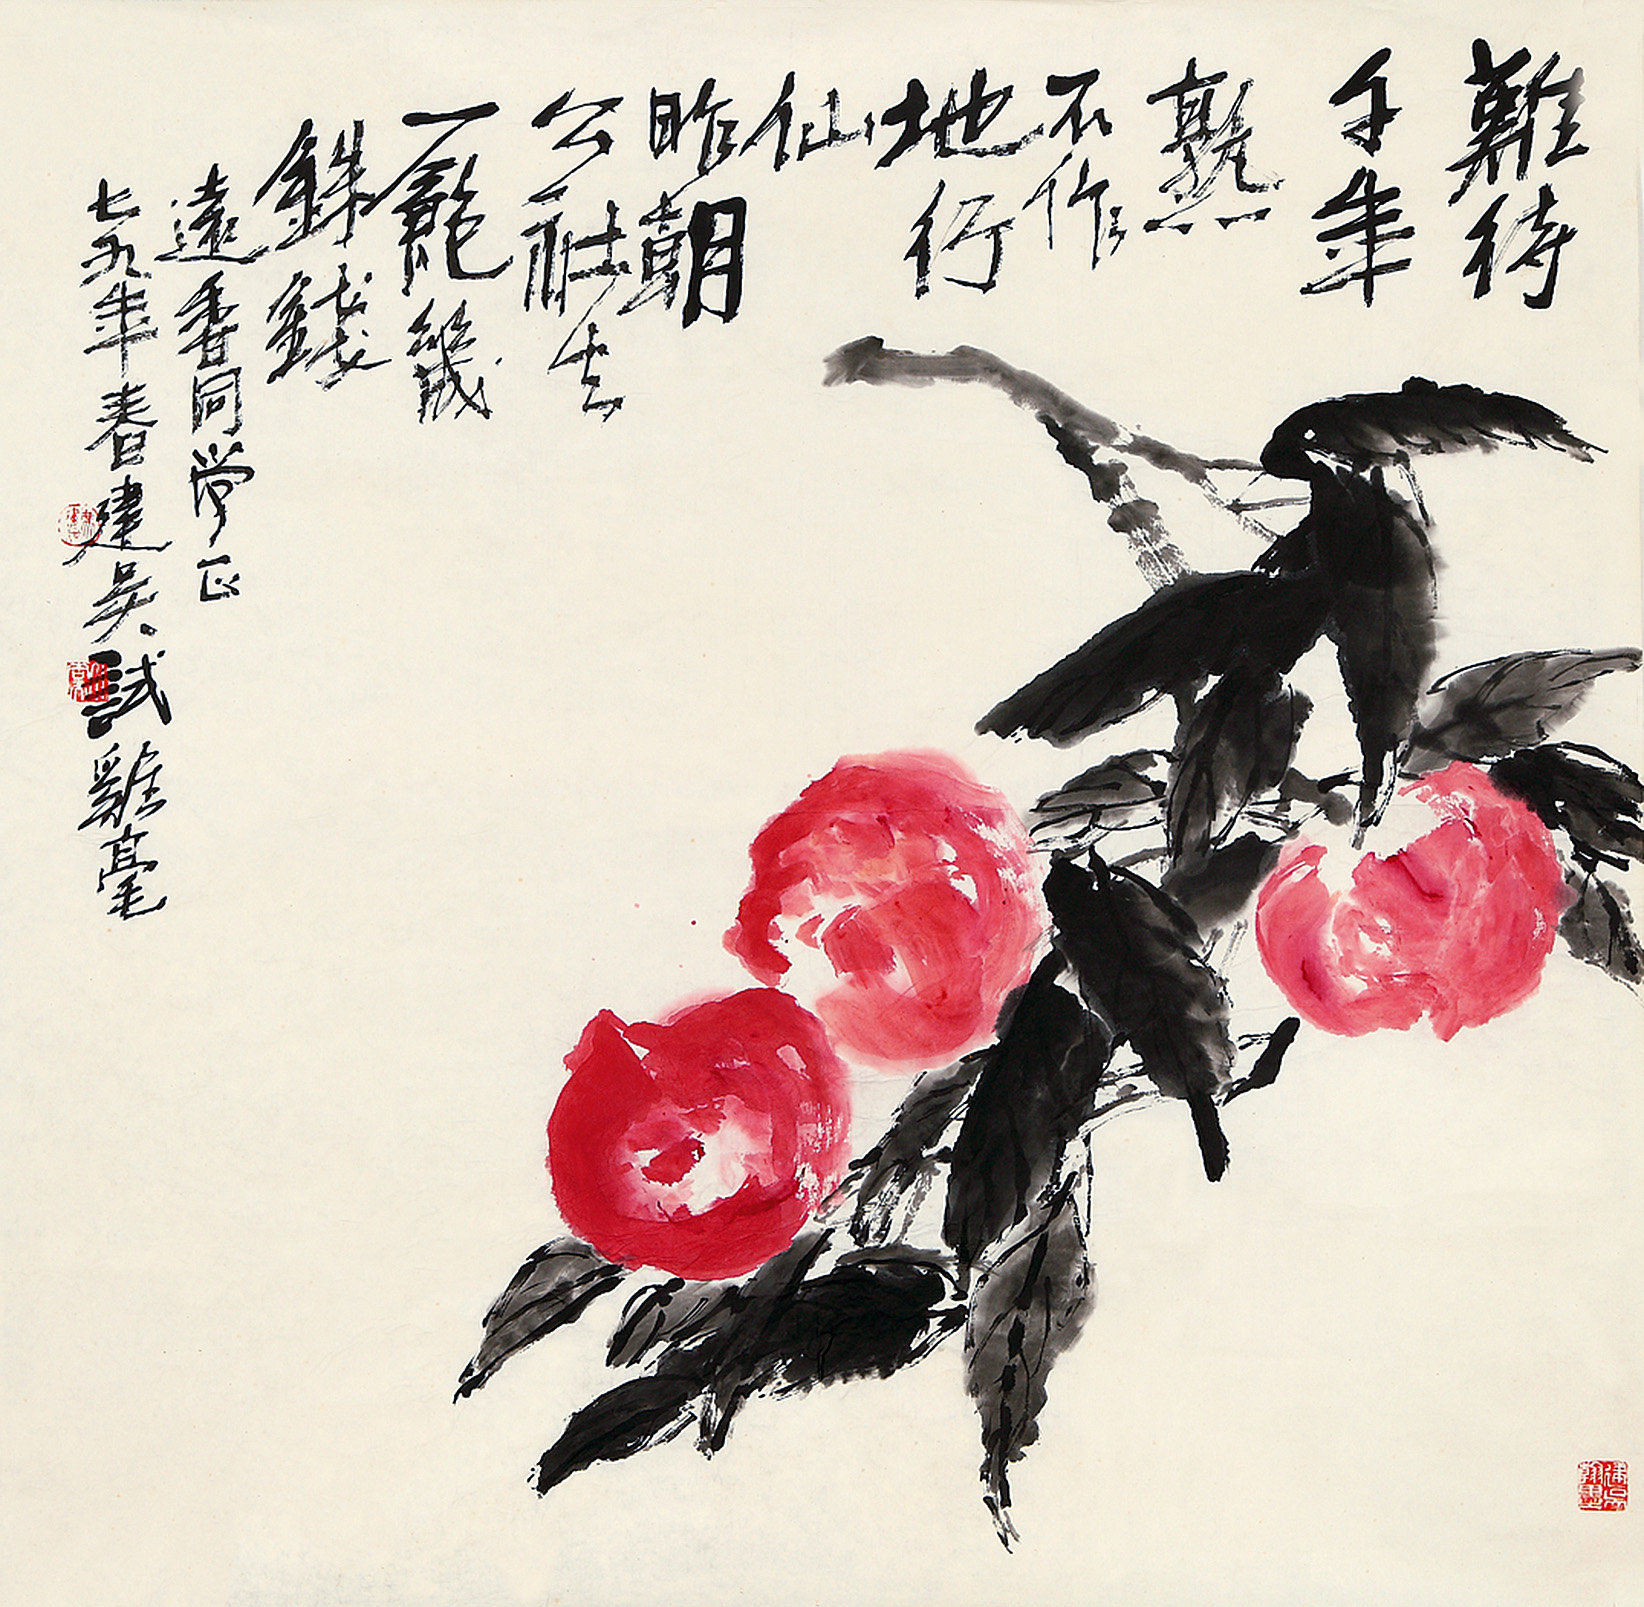 難待
千年
熟
不作
地行
仙
昨朝
公社去
一籠幾
銖錢
遠香同学正
七九年春建吴試雞毫